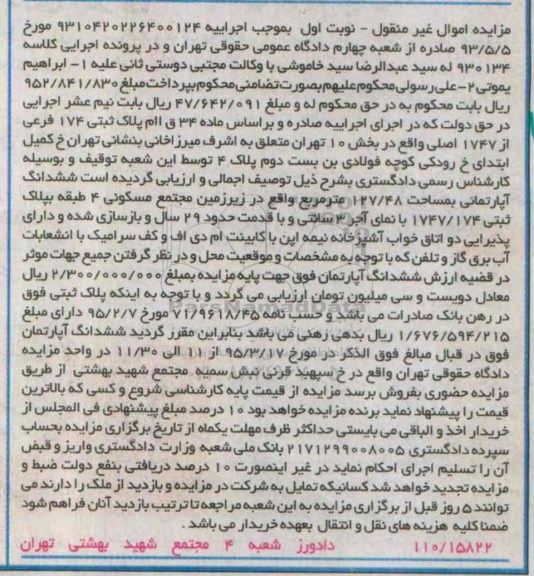 مزایده اموال غیر منقول - نوبت اول بموجب اجراییه ۹۳۱۰۴۲۰۲۲۶۴۰۰۱۲۴ مورخ
۹۳/۵/۵ صادره از شعبه چهارم دادگاه عمومی حقوقی تهران و در پرونده اجرایی کلاسه
۹۳۰۱۳۴ له سید عبدالرضا سید خاموشی با وکالت مجتبی دوستی ثانی علیه ۱- ابراهیم
یموتی ۲-علی رسولی محکوم علیهم بصورت تضامنی محکوم بپرداخت مبلغ ۹۵۲/۸۴۱/۸۳۰
ریال بابت محکوم به در حق محکوم له و مبلغ ۴۷/۶۴۲/۰۹۱ ریال بابت نیم عشر اجرایی
در حق دولت که در اجرای اجراییه صادره و براساس ماده ۳۴ ق اام پلاک ثبتی ۱۷۴ فرعی
از ۱۷۴۷ اصلی واقع در بخش ۱۰ تهران متعلق به اشرف میرزاخانی بنشانی تهران خ کمیل
ابتدای خ رودکی کوچه فولادی بن بست دوم پلاک ۴ توسط این شعبه توقیف و بوسیله
کارشناس رسمی دادگستری بشرح ذیل توصیف اجمالی و ارزیابی گردیده است ششدانگ
آپارتمانی بمساحت ۱۲۷/۴۸ مترمربع واقع در زیرزمین مجتمع مسکونی ۴ طبقه بپلاک
ثبتی ۱۷۴۷/۱۷۴ با نمای آجر ۳ سانتی و با قدمت حدود ۲۹ سال و بازسازی شده و دارای
پذیرایی دو اتاق خواب آشپزخانه نیمه اپن با کابینت ام دی اف و کف سرامیک با انشعابات
آب برق گاز و تلفن که با توجه به مشخصات و موقعیت محل و در نظر گرفتن جمیع جهات موثر
در قضیه ارزش ششدانگ آپارتمان فوق جهت پایه مزایده بمبلغ ۲/۳۰۰/۰۰۰/۰۰۰ ریال
معادل دویست و سی میلیون تومان ارزیابی می گردد و با توجه به اینکه پلاک ثبتی فوق
در رهن بانک صادرات می باشد و حسب نامه ۷۱/۹۶۱۸/۴۵ مورخ ۹۵/۲/۷ دارای مبلغ
۱/۶۷۶/۵۹۴/۲۱۵ ریال بدهی رهنی می باشد بنابراین مقرر گردید ششدانگ آپارتمان
فوق در قبال مبالغ فوق الذکر در مورخ ۹۵/۳/۱۷ از ۱۱ الی ۱۱/۳۰ در واحد مزایده
دادگاه حقوقی تهران واقع در خ سپهبد قرنی نبش سمیه مجتمع شهید بهشتی از طریق
مزایده حضوری بفروش برسد مزایده از قیمت پایه کارشناسی شروع و کسی که بالاترین
قیمت را پیشنهاد نماید برنده مزایده خواهد بود ۱۰ درصد مبلغ پیشنهادی فی المجلس از
خریدار اخذ و الباقی می بایستی حداکثر ظرف مهلت یکماه از تاریخ برگزاری مزایده بحساب
سپرده دادگستری ۲۱۷۱۲۹۹۰۰۸۰۰۵ بانک ملی شعبه وزارت دادگستری واریز و قبض
آن را تسلیم اجرای احکام نماید در غیر اینصورت ۱۰ درصد دریافتی بنفع دولت ضبط و
مزایده تجدید خواهد شد کسانیکه تمایل به شرکت در مزایده و بازدید از ملک را دارند می
توانند ۵ روز قبل از برگزاری مزایده به این شعبه مراجعه تا ترتیب بازدید آنان فراهم شود
ضمنا کلیه هزینه های نقل و انتقال بعهده خریدار می باشد .
۱۱۰/۱۵۸۲۲ دادورز شعبه ۴ مجتمع شهید بهشتی تهران